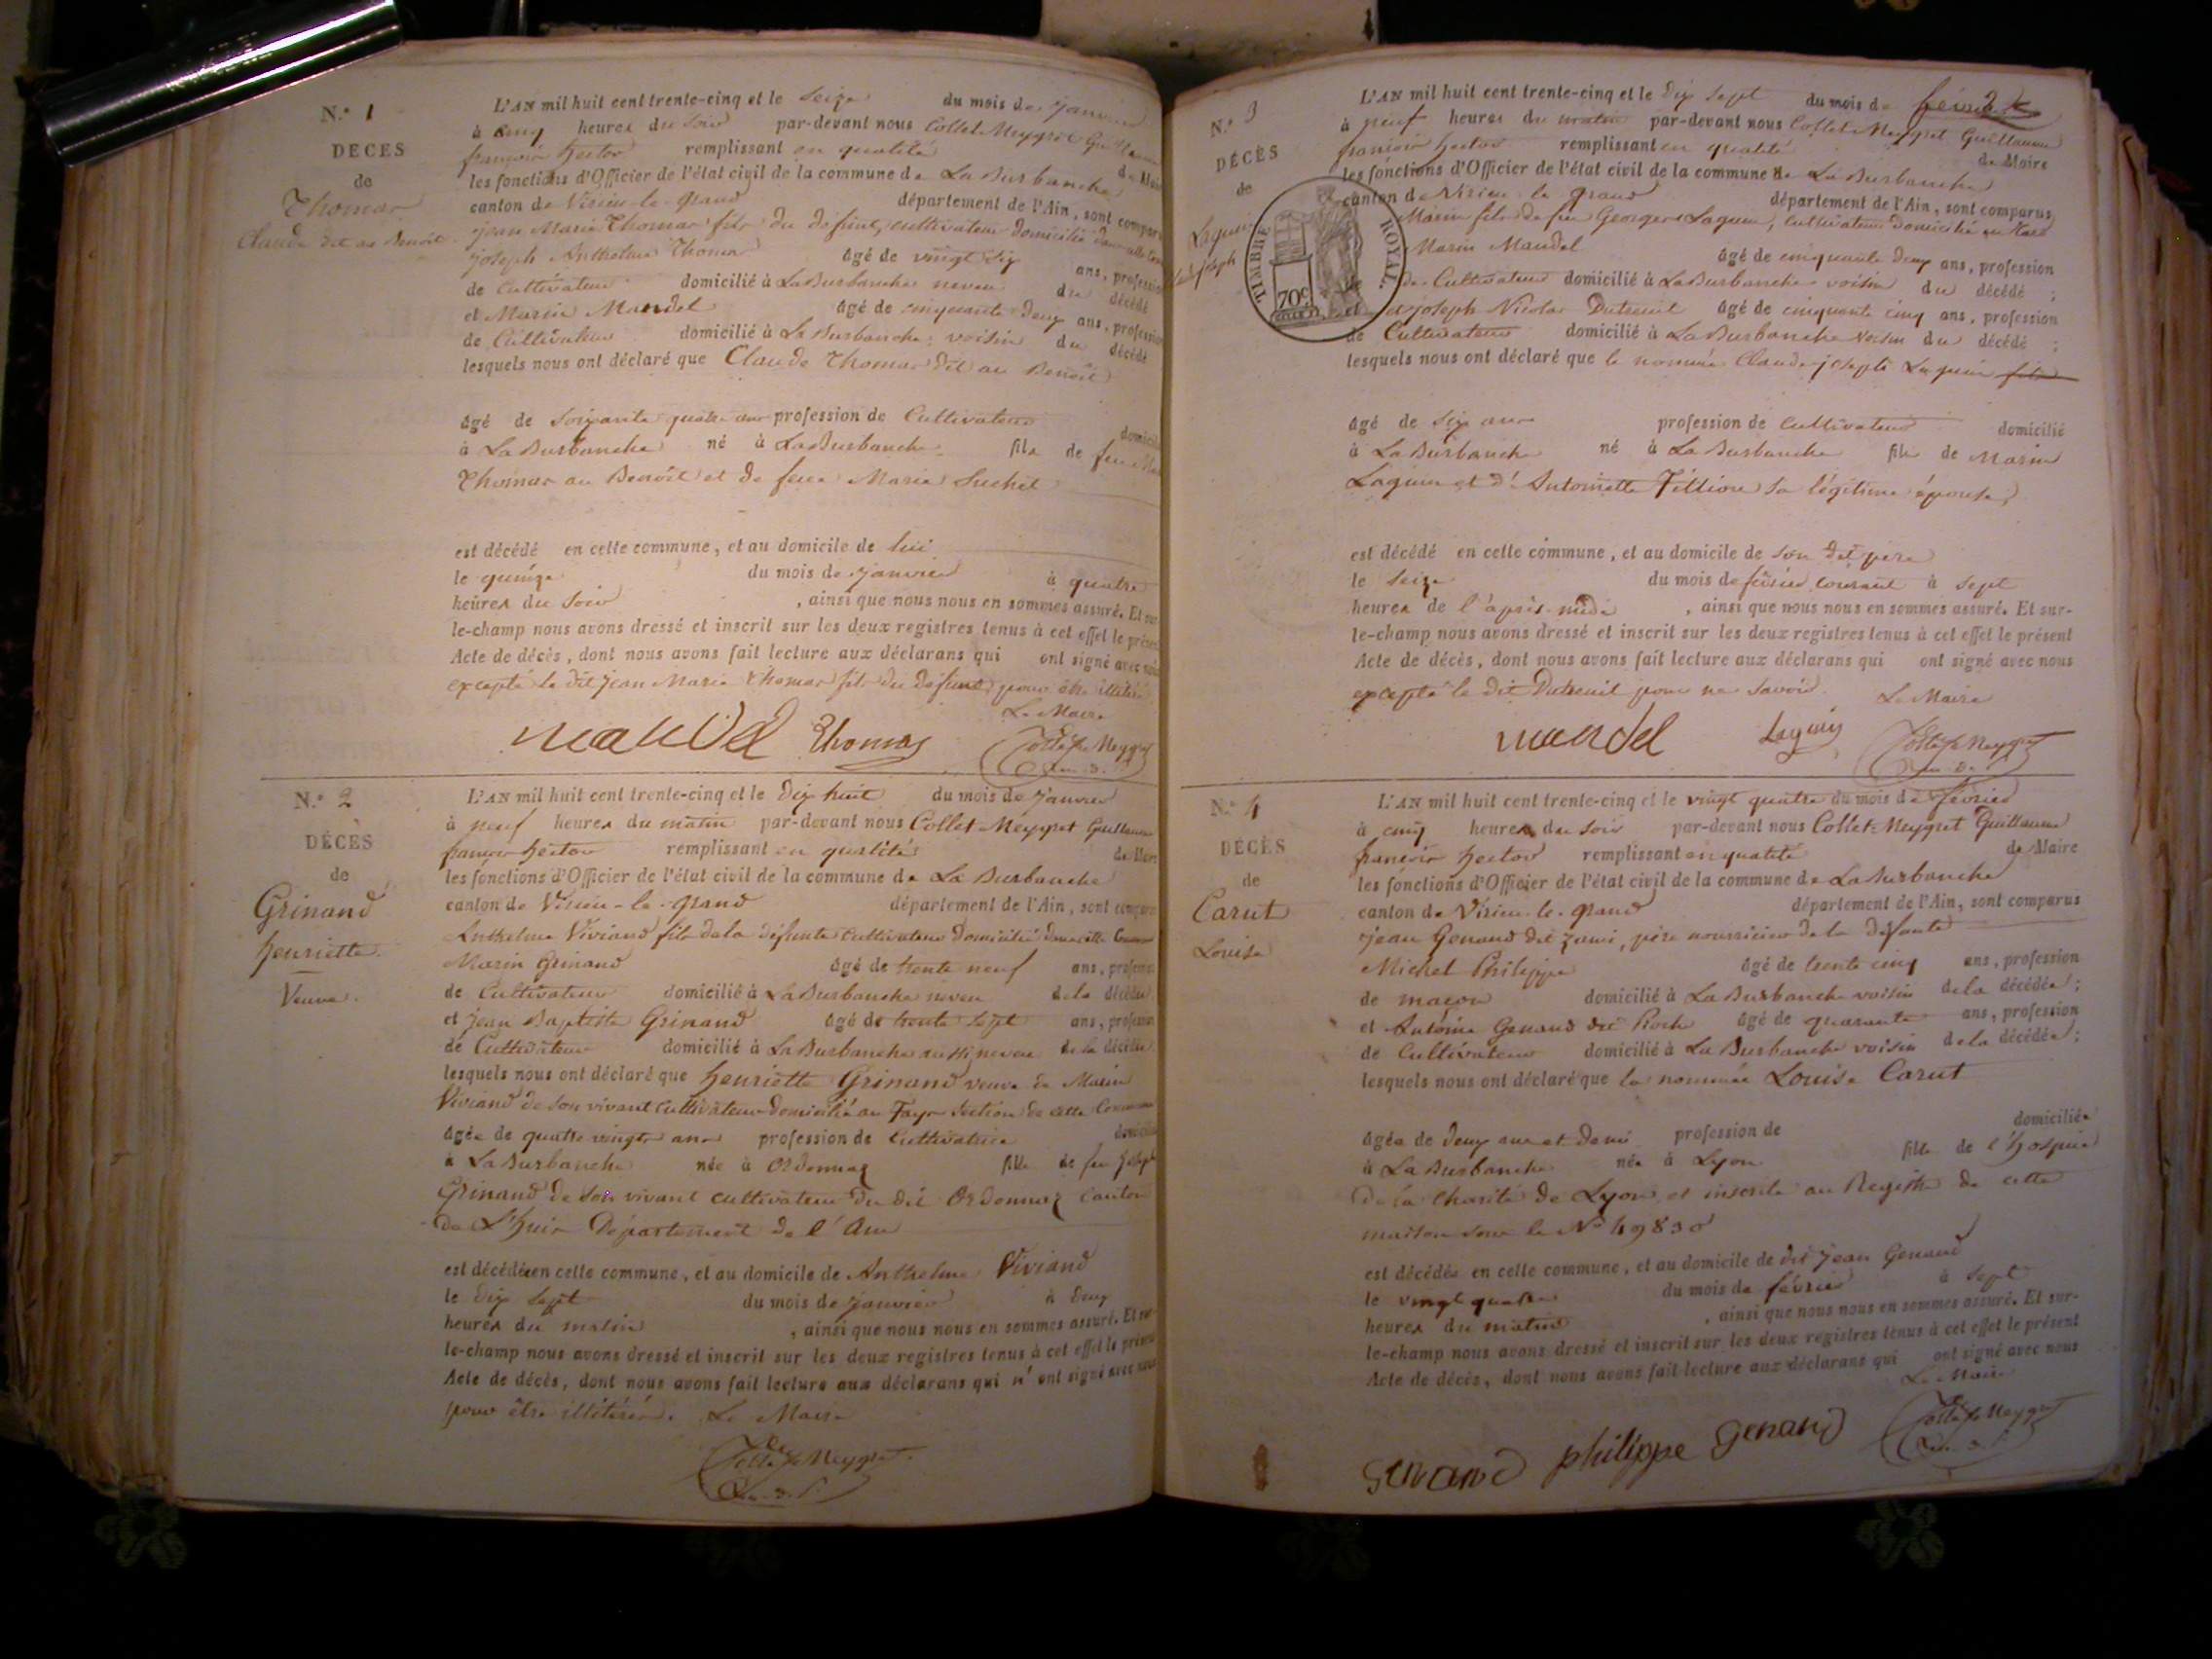 N.° 1
DÉCÈS
de
Thomas
Claude dit au Benoît
L'AN mil huit cent trente-cinq et le seize du mois de janvier
à cinq heures du soir par-devant nous Collet-Meygret Guillaume
françois hector remplissant en qualité de Maire
les fonctions d'Officier de l'état civil de la commune de La Burbanche
canton de Virieu-le-grand département de l'Ain, sont comparus
jean Marie Thomas fils du défunt, cultivateur domicilié dans cette
joseph Anthelme Thomas âgé de vingt six ans, profession
de Cultivateur domicilié à La Burbanche neveu du décédé
et Marin Mandel âgé de cinquante deux ans, profession
de Cultivateur domicilié à La Burbanche, voisin du décédé
lesquels nous ont déclaré que Claude Thomas dit au Benoît
âgé de soixante quatre ans profession de Cultivateur
à La Burbanche né à La Burbanche fils de feu
Thomas au Benoît et de feue Marie Suchet
est décédé en cette commune, et au domicile de lui
le quinze du mois de janvier à quatre
heures du soir , ainsi que nous nous en sommes assuré. Et sur-
le-champ nous avons dressé et inscrit sur les deux registres tenus à cet effet le présent
Acte de décès, dont nous avons fait lecture aux déclarans qui ont signé avec nous
excepté le dit jean Marie Thomas fils du défunt pour être illitéré
Le Maire
mandel Thomas Collet-Meygret
N.° 2
DÉCÈS
de
Grinand
henriette
Veuve.
L'AN mil huit cent trente-cinq et le dix huit du mois de janvier
à neuf heures du matin par-devant nous Collet-Meygret Guillaume
françois hector remplissant en qualité de Maire
les fonctions d'Officier de l'état civil de la commune de La Burbanche
canton de Virieu-le-grand département de l'Ain, sont comparus
Anthelme Viviand fils de la défunte cultivateur domicilié dans cette Commune
Marin Grinand âgé de trente neuf ans, profession
de Cultivateur domicilié à La Burbanche neveu de la décédée
et jean Baptiste Grinand âgé de trente sept ans, profession
de Cultivateur domicilié à La Burbanche aussi neveu de la décédée
lesquels nous ont déclaré que henriette Grinand veuve de Marin
Viviand de son vivant cultivateur domicilié au Fays section de cette Commune
âgée de quatre vingts ans profession de Cultivatrice domiciliée
à La Burbanche née à Ordonnaz fille de feu joseph
Grinand de son vivant cultivateur du dit Ordonnaz canton
de L'huis Département de l'Ain
est décédée en cette commune, et au domicile de Anthelme Viviand
le dix sept du mois de janvier à deux
heures du matin , ainsi que nous nous en sommes assuré. Et sur-
le-champ nous avons dressé et inscrit sur les deux registres tenus à cet effet le présent
Acte de décès, dont nous avons fait lecture aux déclarans qui n'ont signé avec nous
pour être illitérés. Le Maire
Collet-Meygret
N.° 3
DÉCÈS
de
Laguin
joseph
TIMBRE ROYAL.
70c
L'AN mil huit cent trente-cinq et le dix sept du mois de février
à neuf heures du matin par-devant nous Collet-Meygret Guillaume
françois hector remplissant en qualité de Maire
les fonctions d'Officier de l'état civil de la commune de La Burbanche
canton de Virieu le grand département de l'Ain, sont comparus
Marin fils de feu George Laguin, cultivateur domicilié au
Marin Mandel âgé de cinquante deux ans, profession
de Cultivateur domicilié à La Burbanche voisin du décédé ;
et joseph Nicolas Dutreuil âgé de cinquante cinq ans, profession
de Cultivateur domicilié à La Burbanche voisin du décédé ;
lesquels nous ont déclaré que le nommé Claude joseph Laguin fils
âgé de six ans profession de Cultivateur domicilié
à La Burbanche né à La Burbanche fils de Marin
Laguin et d'Antoinette Fillion sa légitime épouse
est décédé en cette commune, et au domicile de son dit père
le seize du mois de février courant à sept
heures de l'après-midi , ainsi que nous nous en sommes assuré. Et sur-
le-champ nous avons dressé et inscrit sur les deux registres tenus à cet effet le présent
Acte de décès, dont nous avons fait lecture aux déclarans qui ont signé avec nous
excepté le dit Dutreuil pour ne savoir. Le Maire
mandel Laguin Collet-Meygret
N.° 4
DÉCÈS
de
Carut
Louise
L'AN mil huit cent trente-cinq et le vingt quatre du mois de février
à cinq heures du soir par-devant nous Collet-Meygret Guillaume
françois hector remplissant en qualité de Maire
les fonctions d'Officier de l'état civil de la commune de La Burbanche
canton de Virieu-le-grand département de l'Ain, sont comparus
jean Genand dit, père nourricier de la défunte
Michel Philippe âgé de trente cinq ans, profession
de maçon domicilié à La Burbanche voisin de la décédée ;
et Antoine Genand dit Roch âgé de quarante ans, profession
de Cultivateur domicilié à La Burbanche voisin de la décédée ;
lesquels nous ont déclaré que la nommée Louise Carut
âgée de deux ans et demi profession de domiciliée
à La Burbanche née à Lyon fille de l'hospice
de la Charité de Lyon et inscrite au Registre de cette
maison sous le N° 49830
est décédée en cette commune, et au domicile de dit jean Genand
le vingt quatre du mois de février à sept
heures du matin , ainsi que nous nous en sommes assuré. Et sur-
le-champ nous avons dressé et inscrit sur les deux registres tenus à cet effet le présent
Acte de décès, dont nous avons fait lecture aux déclarans qui ont signé avec nous
Le Maire
Genand philippe Genand Collet-Meygret